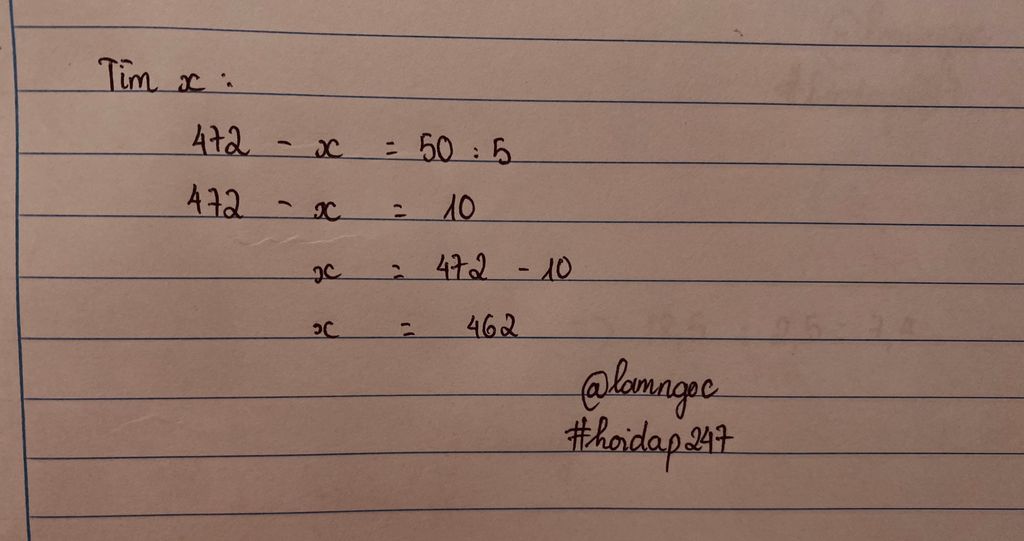 Tìm x :
472 - x = 50 : 5
472 - x = 10
x = 472 - 10
x = 462
@lamngoc
#hoidap247